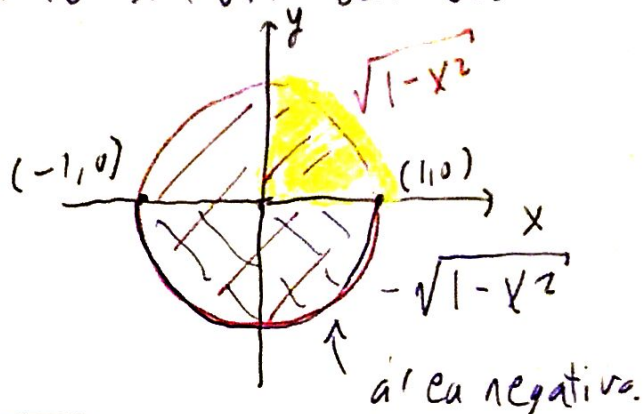 y
√(1-x²)
(-1,0)
(1,0)
x
-√(1-x²)
área negativa.